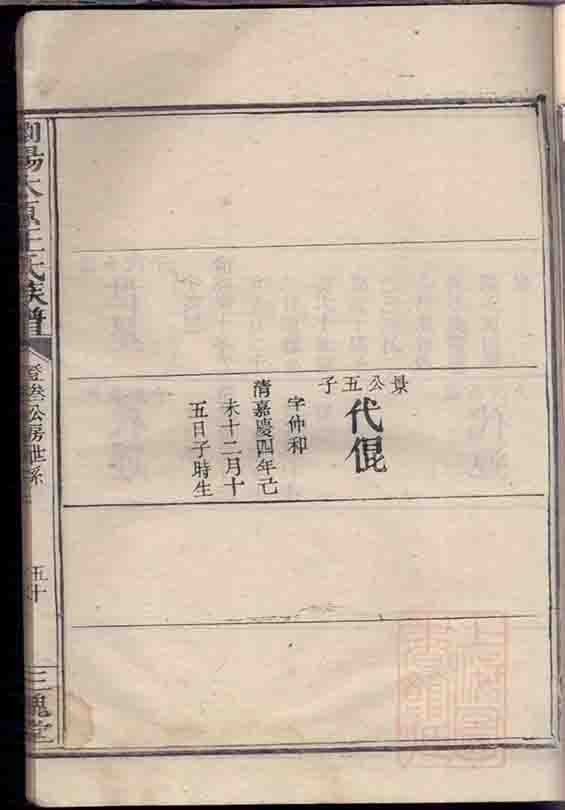 景公五子
代倱
字仲和
清嘉慶四年己
未十二月十
五日子時生
瀏陽太原王氏族譜
公房世系
五十
三槐堂